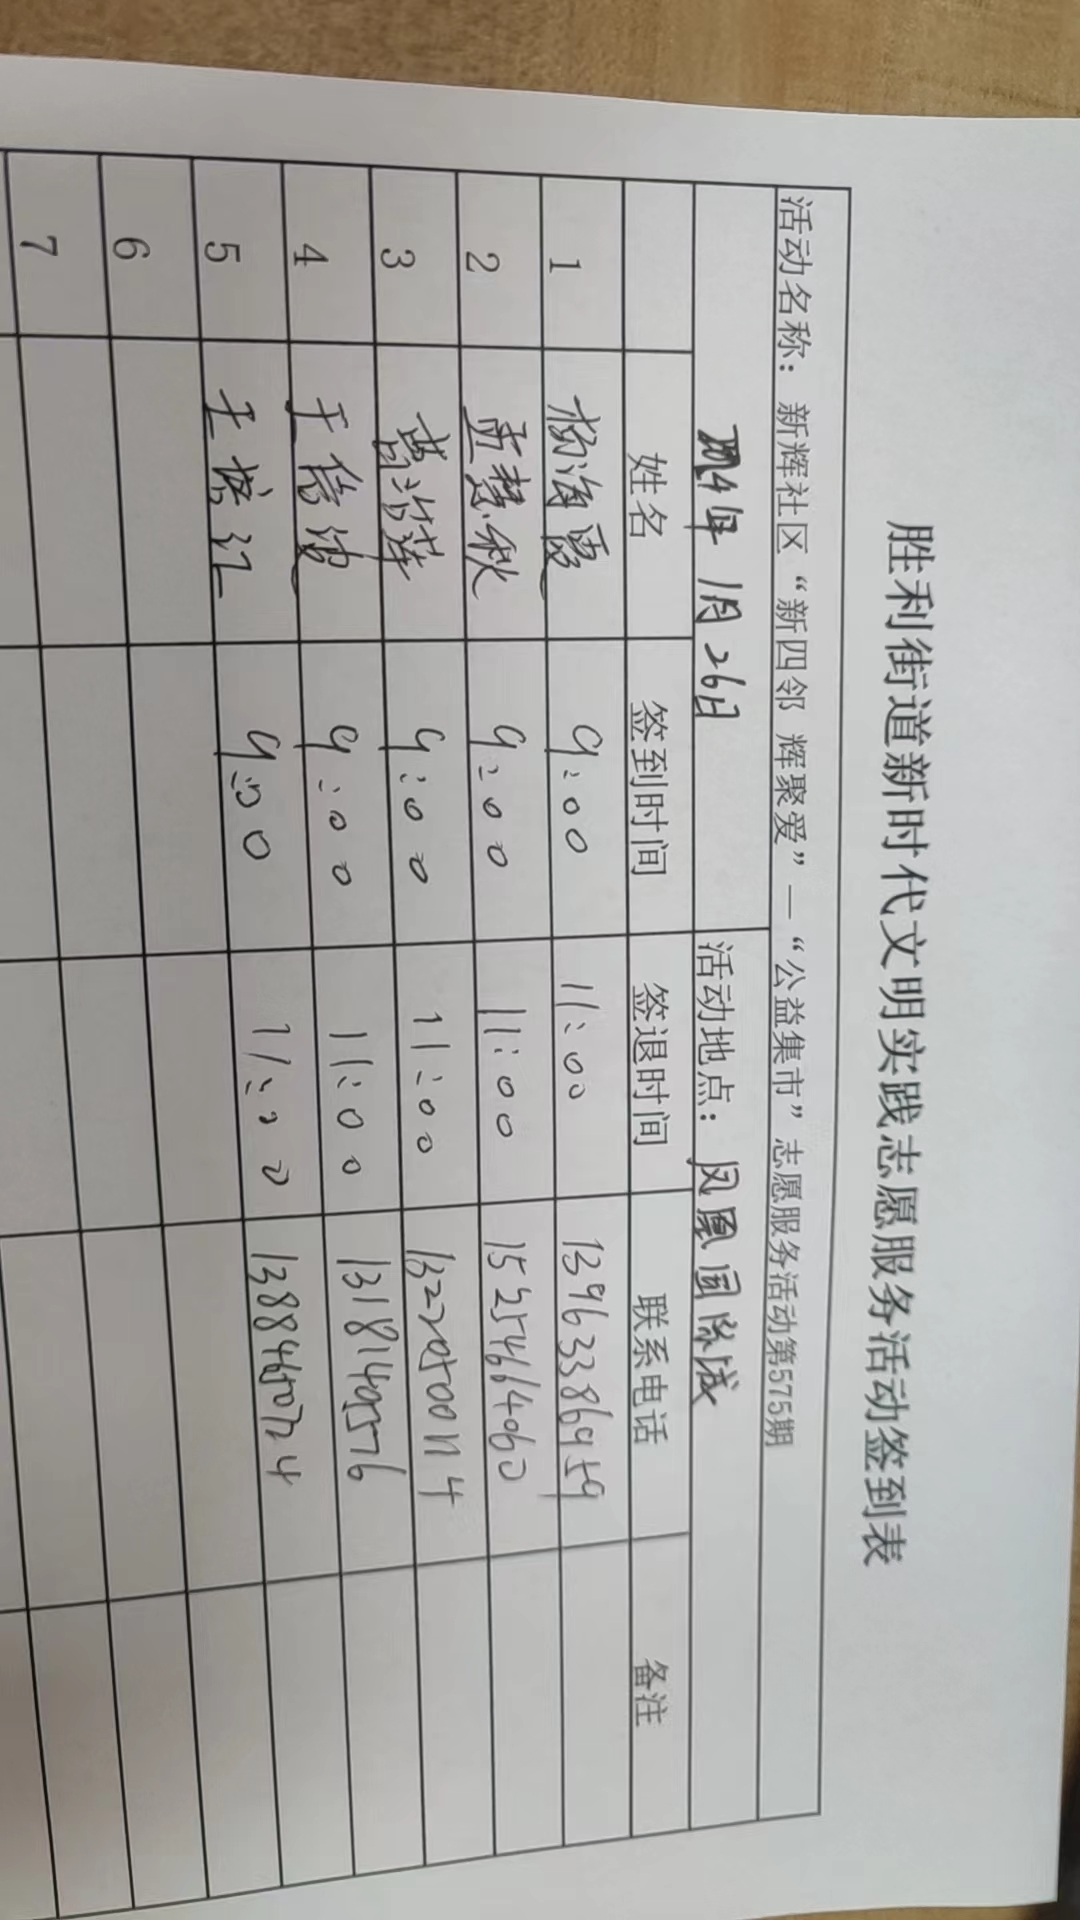 胜利街道新时代文明实践志愿服务活动签到表
活动名称：新辉社区“新四邻 辉聚爱”—“公益集市”志愿服务活动第575期
2024年1月26日 活动地点：凤凰国际城
姓名 签到时间 签退时间 联系电话 备注
1 杨海霞 9:00 11:00 13963386959
2 孟慧秋 9:00 11:00 15254664060
3 9:00 11:00
4 王信波 9:00 11:00 13181409576
5 9:00 11:00 13884650724
6
7